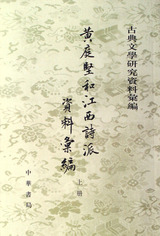 古典文學研究資料彙編
黃庭堅和江西詩派
資料彙編
上冊
中華書局